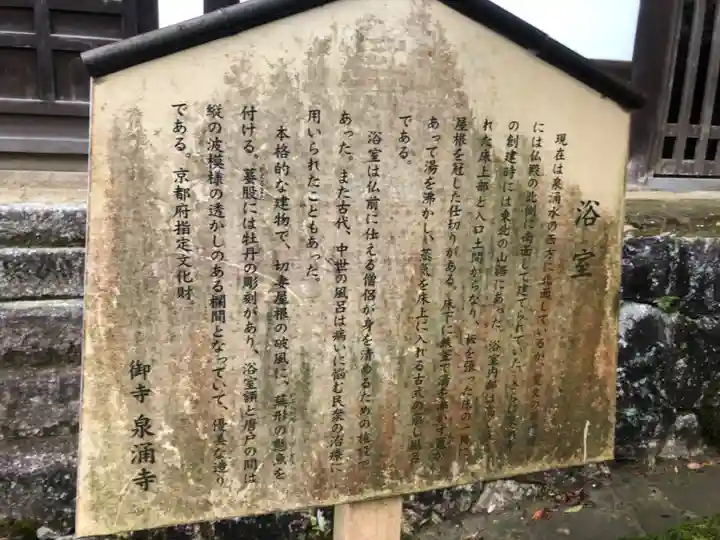 浴室
現在は泉涌水の西方に北面しているが、
には仏殿の北側に南面して建てられていた。さらに
の創建時には東北の山際にあった。浴室内部は
れた床上部と入口土間からなり、板を張った床の一隅に
屋根を冠した仕切りがある。床下に釜
あって湯を沸かし、蒸気を床上に入れる古式の蒸し風呂
である。
浴室は仏前に仕える僧侶が身を清めるための施設で
あった。また古代、中世の風呂は病いに悩む民衆の治療に
用いられたこともあった。
本格的な建物で、切妻屋根の破風に、蕪形の懸魚を
付ける。蟇股には牡丹の彫刻があり、浴室額と唐戸の間は
縦の波模様の透かしのある欄間となっていて、優美な造り
である。京都府指定文化財
御寺 泉涌寺